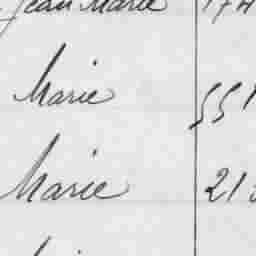 Jean Marie 174
Marie 551
Marie 21